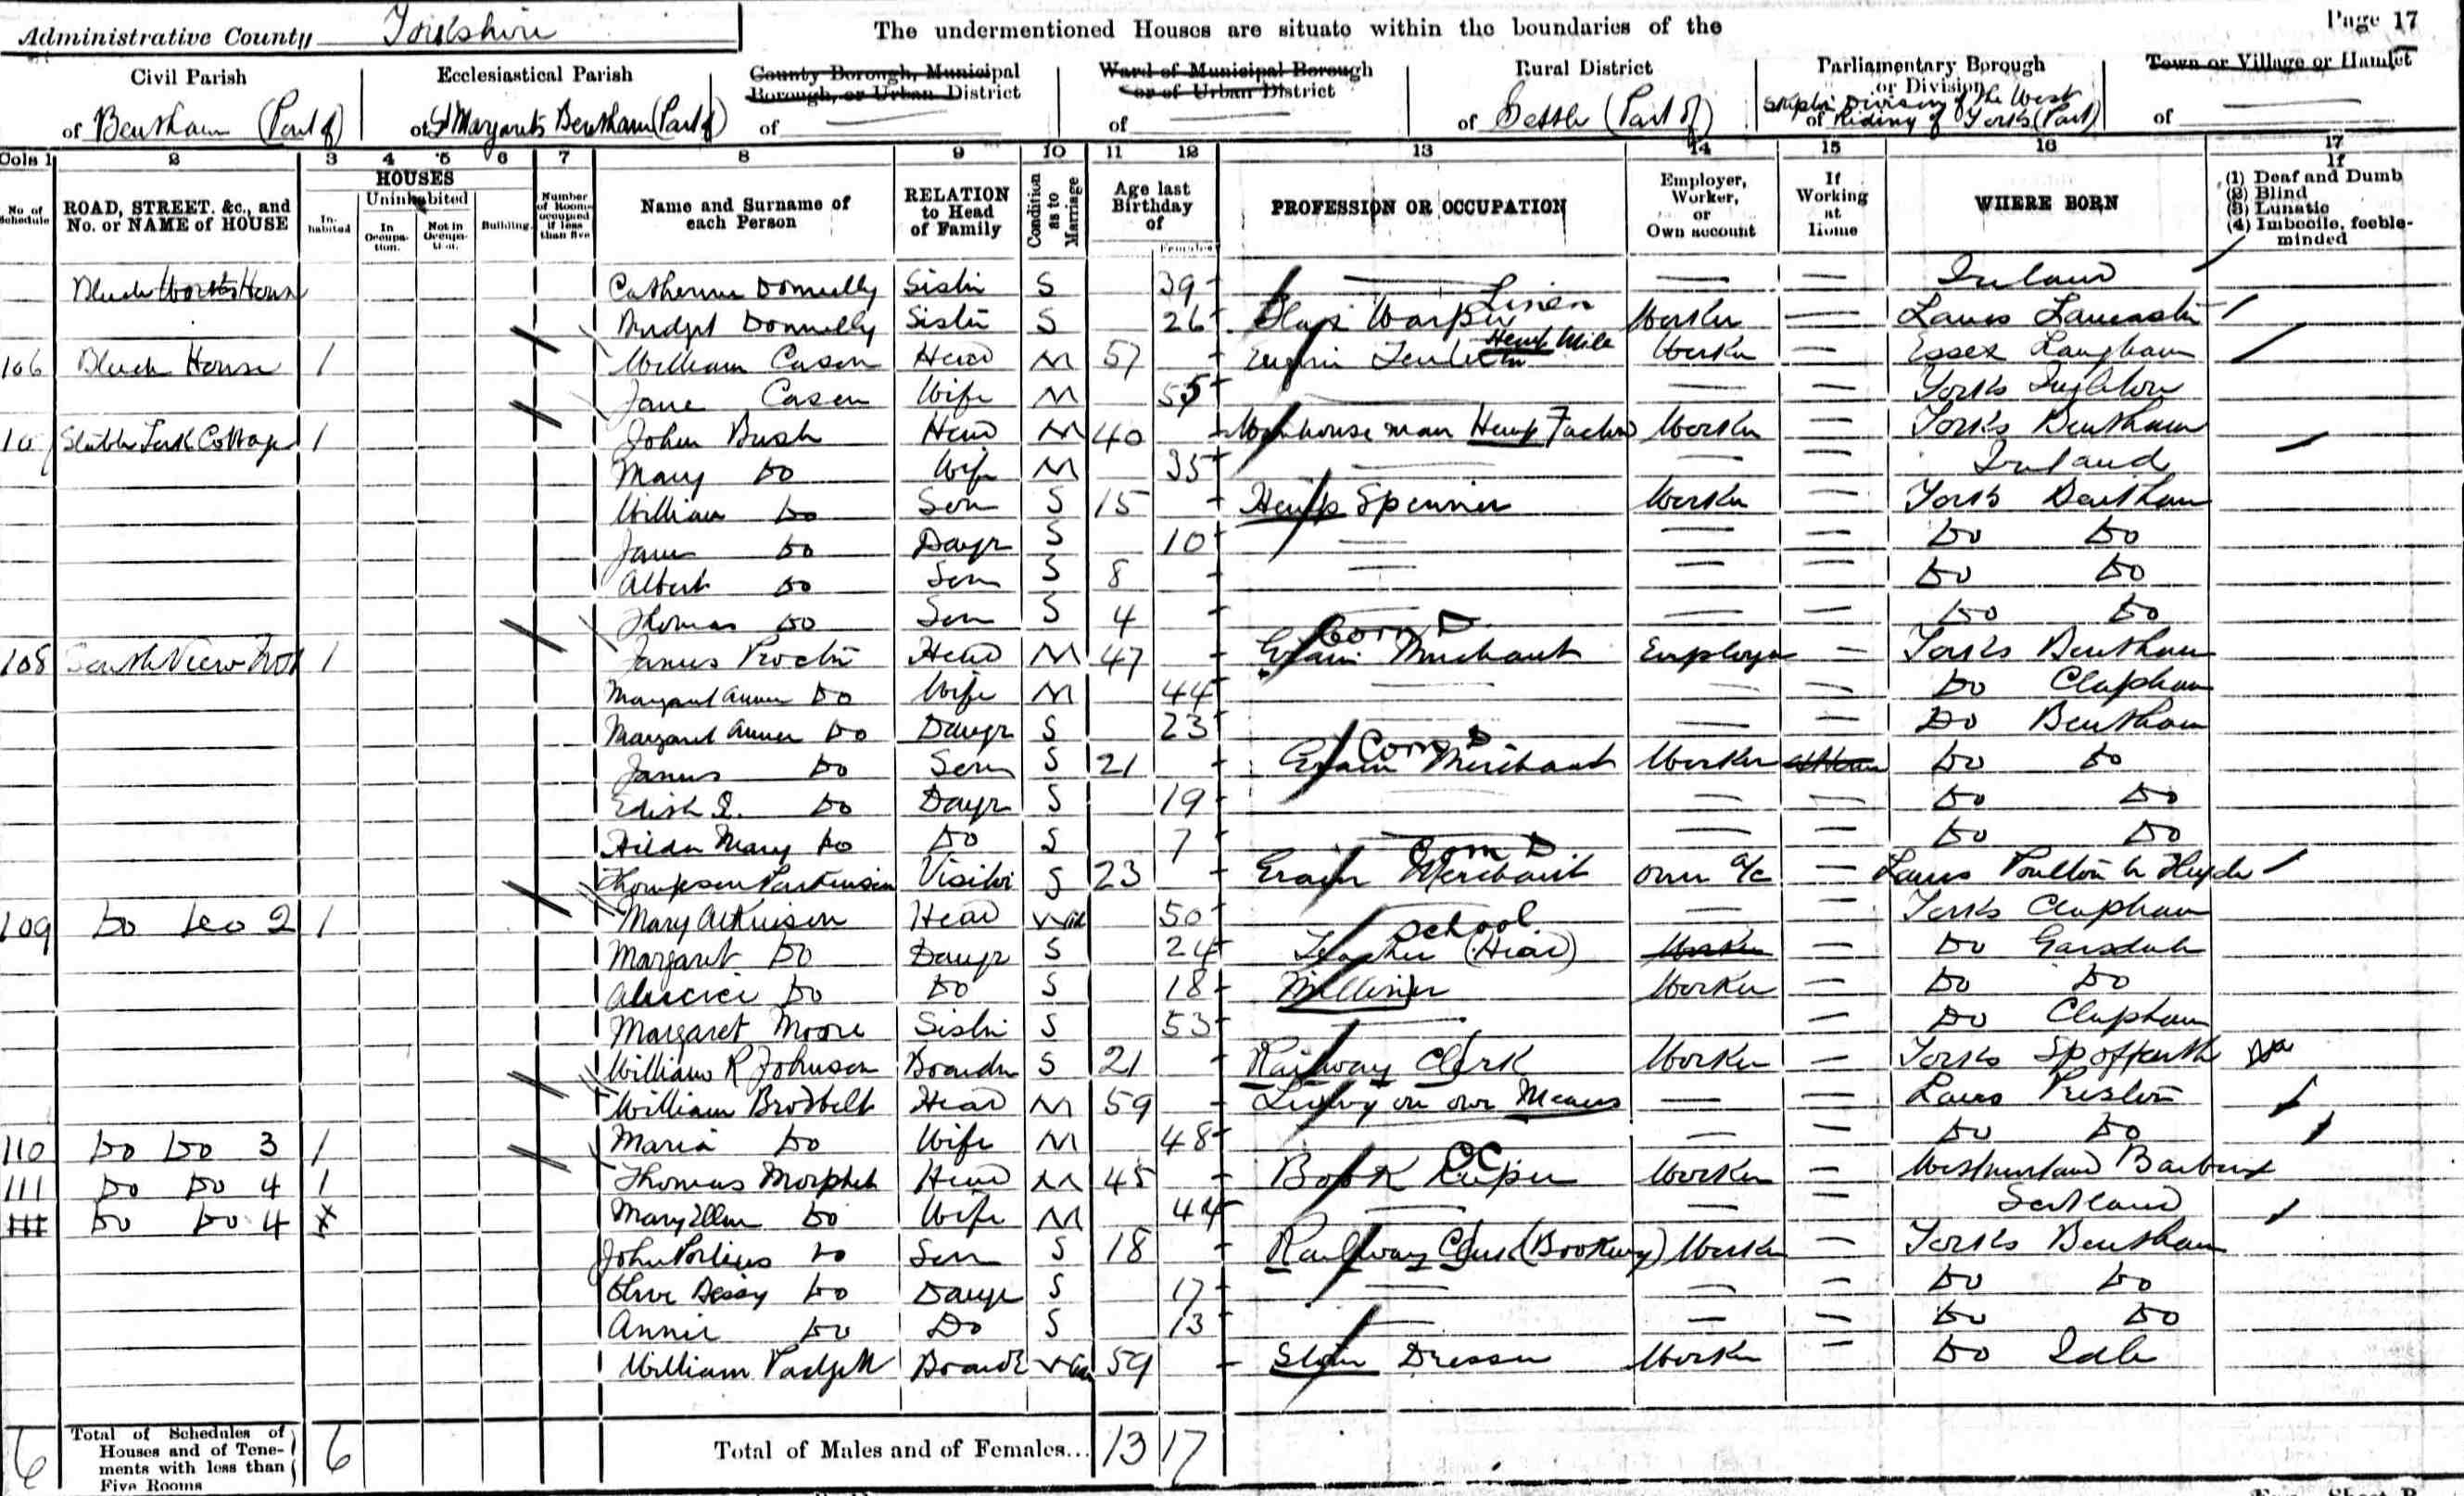 Administrative County Yorkshire
The undermentioned Houses are situate within the boundaries of the
Page 17
Civil Parish
of Bentham (Part of)
Ecclesiastical Parish
of St Margarets Bentham (Part of)
County Borough, Municipal Borough, or Urban District
of
Ward of Municipal Borough or of Urban District
of
Rural District
of Settle (Part of)
Parliamentary Borough or Division
of Skipton Division of the West Riding of Yorks (Part)
Town or Village or Hamlet
of
Cols 1 2 3 4 5 6 7 8 9 10 11 12 13 14 15 16 17
No. of Schedule
ROAD, STREET, &c., and No. or NAME of HOUSE
HOUSES
Inhabited
Uninhabited
In Occupation.
Not in Occupation.
Building.
Number of Rooms occupied if less than five
Name and Surname of each Person
RELATION to Head of Family
Condition as to Marriage
Age last Birthday of
Females
PROFESSION OR OCCUPATION
Employer, Worker, or Own account
If Working at Home
WHERE BORN
If
(1) Deaf and Dumb
(2) Blind
(3) Lunatic
(4) Imbecile, feeble-minded
Catherine Donnelly Sister S 39 Ireland
Bridget Donnelly Sister S 26 Warper Linen Worker Lancs Lancaster
106 House 1 William Cason Head M 57 Engine Tenter Hemp Mill Worker Essex Langham
Jane Cason Wife M 55 Yorks Ingleton
107 Cottage 1 John Bush Head M 40 Warehouse man Hemp Factory Worker Yorks Bentham
Mary Do Wife M 35 Ireland
William Do Son S 15 Hemp Spinner Worker Yorks Bentham
Jane Do Daugr S 10 Do Do
Albert Do Son S 8 Do Do
Thomas Do Son S 4 Do Do
108 South View No 1 1 James Procter Head M 47 Corn D Grain Merchant Employer Yorks Bentham
Margaret Annie Do Wife M 44 Do Clapham
Margaret Annie Do Daugr S 23 Do Bentham
James Do Son S 21 Corn D Grain Merchant Worker At Home Do Do
Edith Do Daugr S 19 Do Do
Hilda Mary Do Do S 7 Do Do
Thompson Parkinson Visitor S 23 Corn D Grain Merchant Own a/c Lancs Poulton le Fylde
109 Do Do 2 1 Mary Atkinson Head Wid 50 Yorks Clapham
Margaret Do Daugr S 24 School Teacher (Head) Worker Do Garsdale
Do Do S 18 Milliner Worker Do Do
Margaret Moore Sister S 53 Do Clapham
William R Johnson Boarder S 21 Railway Clerk Worker Yorks Spofforth
William Brodbelt Head M 59 Living on own Means Lancs Preston
110 Do Do 3 1 Maria Do Wife M 48 Do Do
111 Do Do 4 1 Thomas Morphet Head M 45 CC Book Keeper Worker Westmorland Barbon
111 Do Do 4 Mary Ellen Do Wife M 44 Scotland
John Do Son S 18 Railway Clerk (Booking) Worker Yorks Bentham
Olive Do Daugr S 17 Do Do
Annie Do Do S 13 Do Do
William Padgett Board Wid 59 Dresser Worker Do Idle
6 Total of Schedules of Houses and of Tenements with less than Five Rooms 6
Total of Males and of Females... 13 17